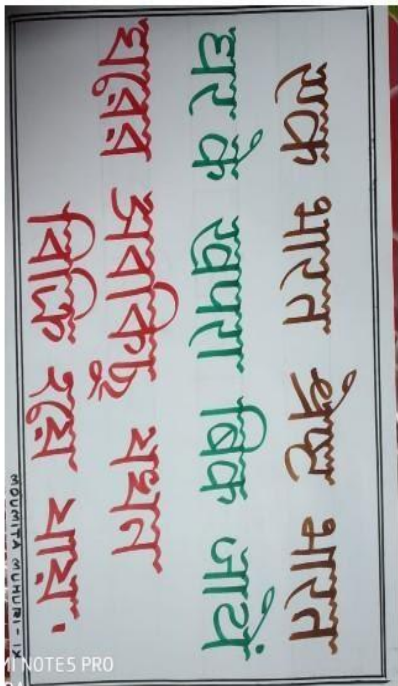 एक भारत श्रेष्ट भारत
घर के खपरा बिक जायें
ঘরের সবকিছু যখন
বিক্রি হয়ে যায়.
MOUMITA MUHURI - IX
MI NOTE5 PRO